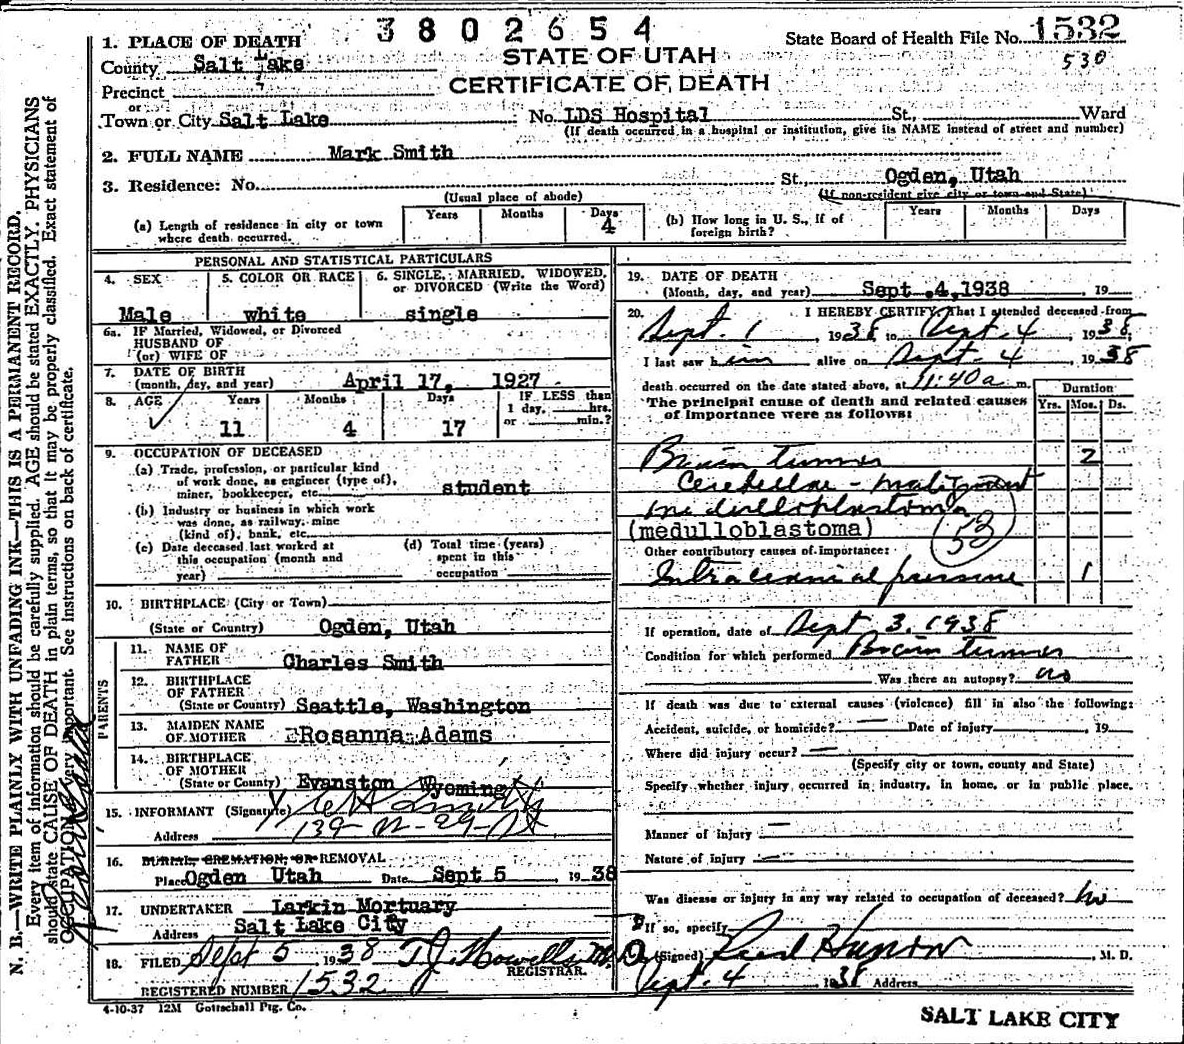 3802654
State Board of Health File No. 1532
530
STATE OF UTAH
CERTIFICATE OF DEATH
1. PLACE OF DEATH
County Salt Lake
Precinct
or
Town or City Salt Lake No. LDS Hospital St., Ward
(If death occurred in a hospital or institution, give its NAME instead of street and number)
2. FULL NAME Mark Smith
3. Residence: No. St., Ogden, Utah
(Usual place of abode) (If non-resident give city or town and State)
(a) Length of residence in city or town where death occurred. Years Months Days 4
(b) How long in U. S., if of foreign birth? Years Months Days
PERSONAL AND STATISTICAL PARTICULARS
4. SEX 5. COLOR OR RACE 6. SINGLE, MARRIED, WIDOWED, or DIVORCED (Write the Word)
Male white single
6a. IF Married, Widowed, or Divorced
HUSBAND OF
(or) WIFE OF
7. DATE OF BIRTH
(month, day, and year) April 17, 1927
8. AGE Years Months Days IF LESS than
1 day, hrs.
or min.?
11 4 17
9. OCCUPATION OF DECEASED
(a) Trade, profession, or particular kind
of work done, as engineer (type of),
miner, bookkeeper, etc. student
(b) Industry or business in which work
was done, as railway, mine
(kind of), bank, etc.
(c) Date deceased last worked at
this occupation (month and
year)
(d) Total time (years)
spent in this
occupation
10. BIRTHPLACE (City or Town)
(State or Country) Ogden, Utah
PARENTS
11. NAME OF
FATHER Charles Smith
12. BIRTHPLACE
OF FATHER
(State or Country) Seattle, Washington
13. MAIDEN NAME
OF MOTHER Rosanna Adams
14. BIRTHPLACE
OF MOTHER
(State or County) Evanston Wyoming
15. INFORMANT (Signature)
Address 139
16. BURIAL, CREMATION, OR REMOVAL
Place Ogden Utah Date Sept 5, 1938
17. UNDERTAKER Larkin Mortuary
Address Salt Lake City
18. FILED Sept 5 1938 T J Howells M.D.
REGISTRAR.
REGISTERED NUMBER 1532
4-10-37 12M Gottschall Ptg. Co.
19. DATE OF DEATH
(Month, day, and year) Sept. 4, 1938, 19
20. I HEREBY CERTIFY, That I attended deceased from
Sept. 1, 1938 to Sept. 4, 1938,
I last saw him alive on Sept. 4, 1938
death occurred on the date stated above, at 11:40 a m.
The principal cause of death and related causes
of importance were as follows:
Duration
Yrs. Mos. Ds.
Brain Tumor 2
Cerebellar - malignant
medulloblastoma
(medulloblastoma)
53
Other contributory causes of importance:
Intracranial pressure 1
If operation, date of Sept 3, 1938
Condition for which performed Brain Tumor
Was there an autopsy? no
If death was due to external causes (violence) fill in also the following:
Accident, suicide, or homicide? Date of injury, 19
Where did injury occur?
(Specify city or town, county and State)
Specify whether injury occurred in industry, in home, or in public place.
Manner of injury
Nature of injury
Was disease or injury in any way related to occupation of deceased? no
If so, specify
(Signed), M. D.
Sept. 4 1938 Address
SALT LAKE CITY
N. B.—WRITE PLAINLY WITH UNFADING INK—THIS IS A PERMANENT RECORD.
Every item of information should be carefully supplied. AGE should be stated EXACTLY. PHYSICIANS
should state CAUSE OF DEATH in plain terms, so that it may be properly classified. Exact statement of
OCCUPATION is very important. See instructions on back of certificate.